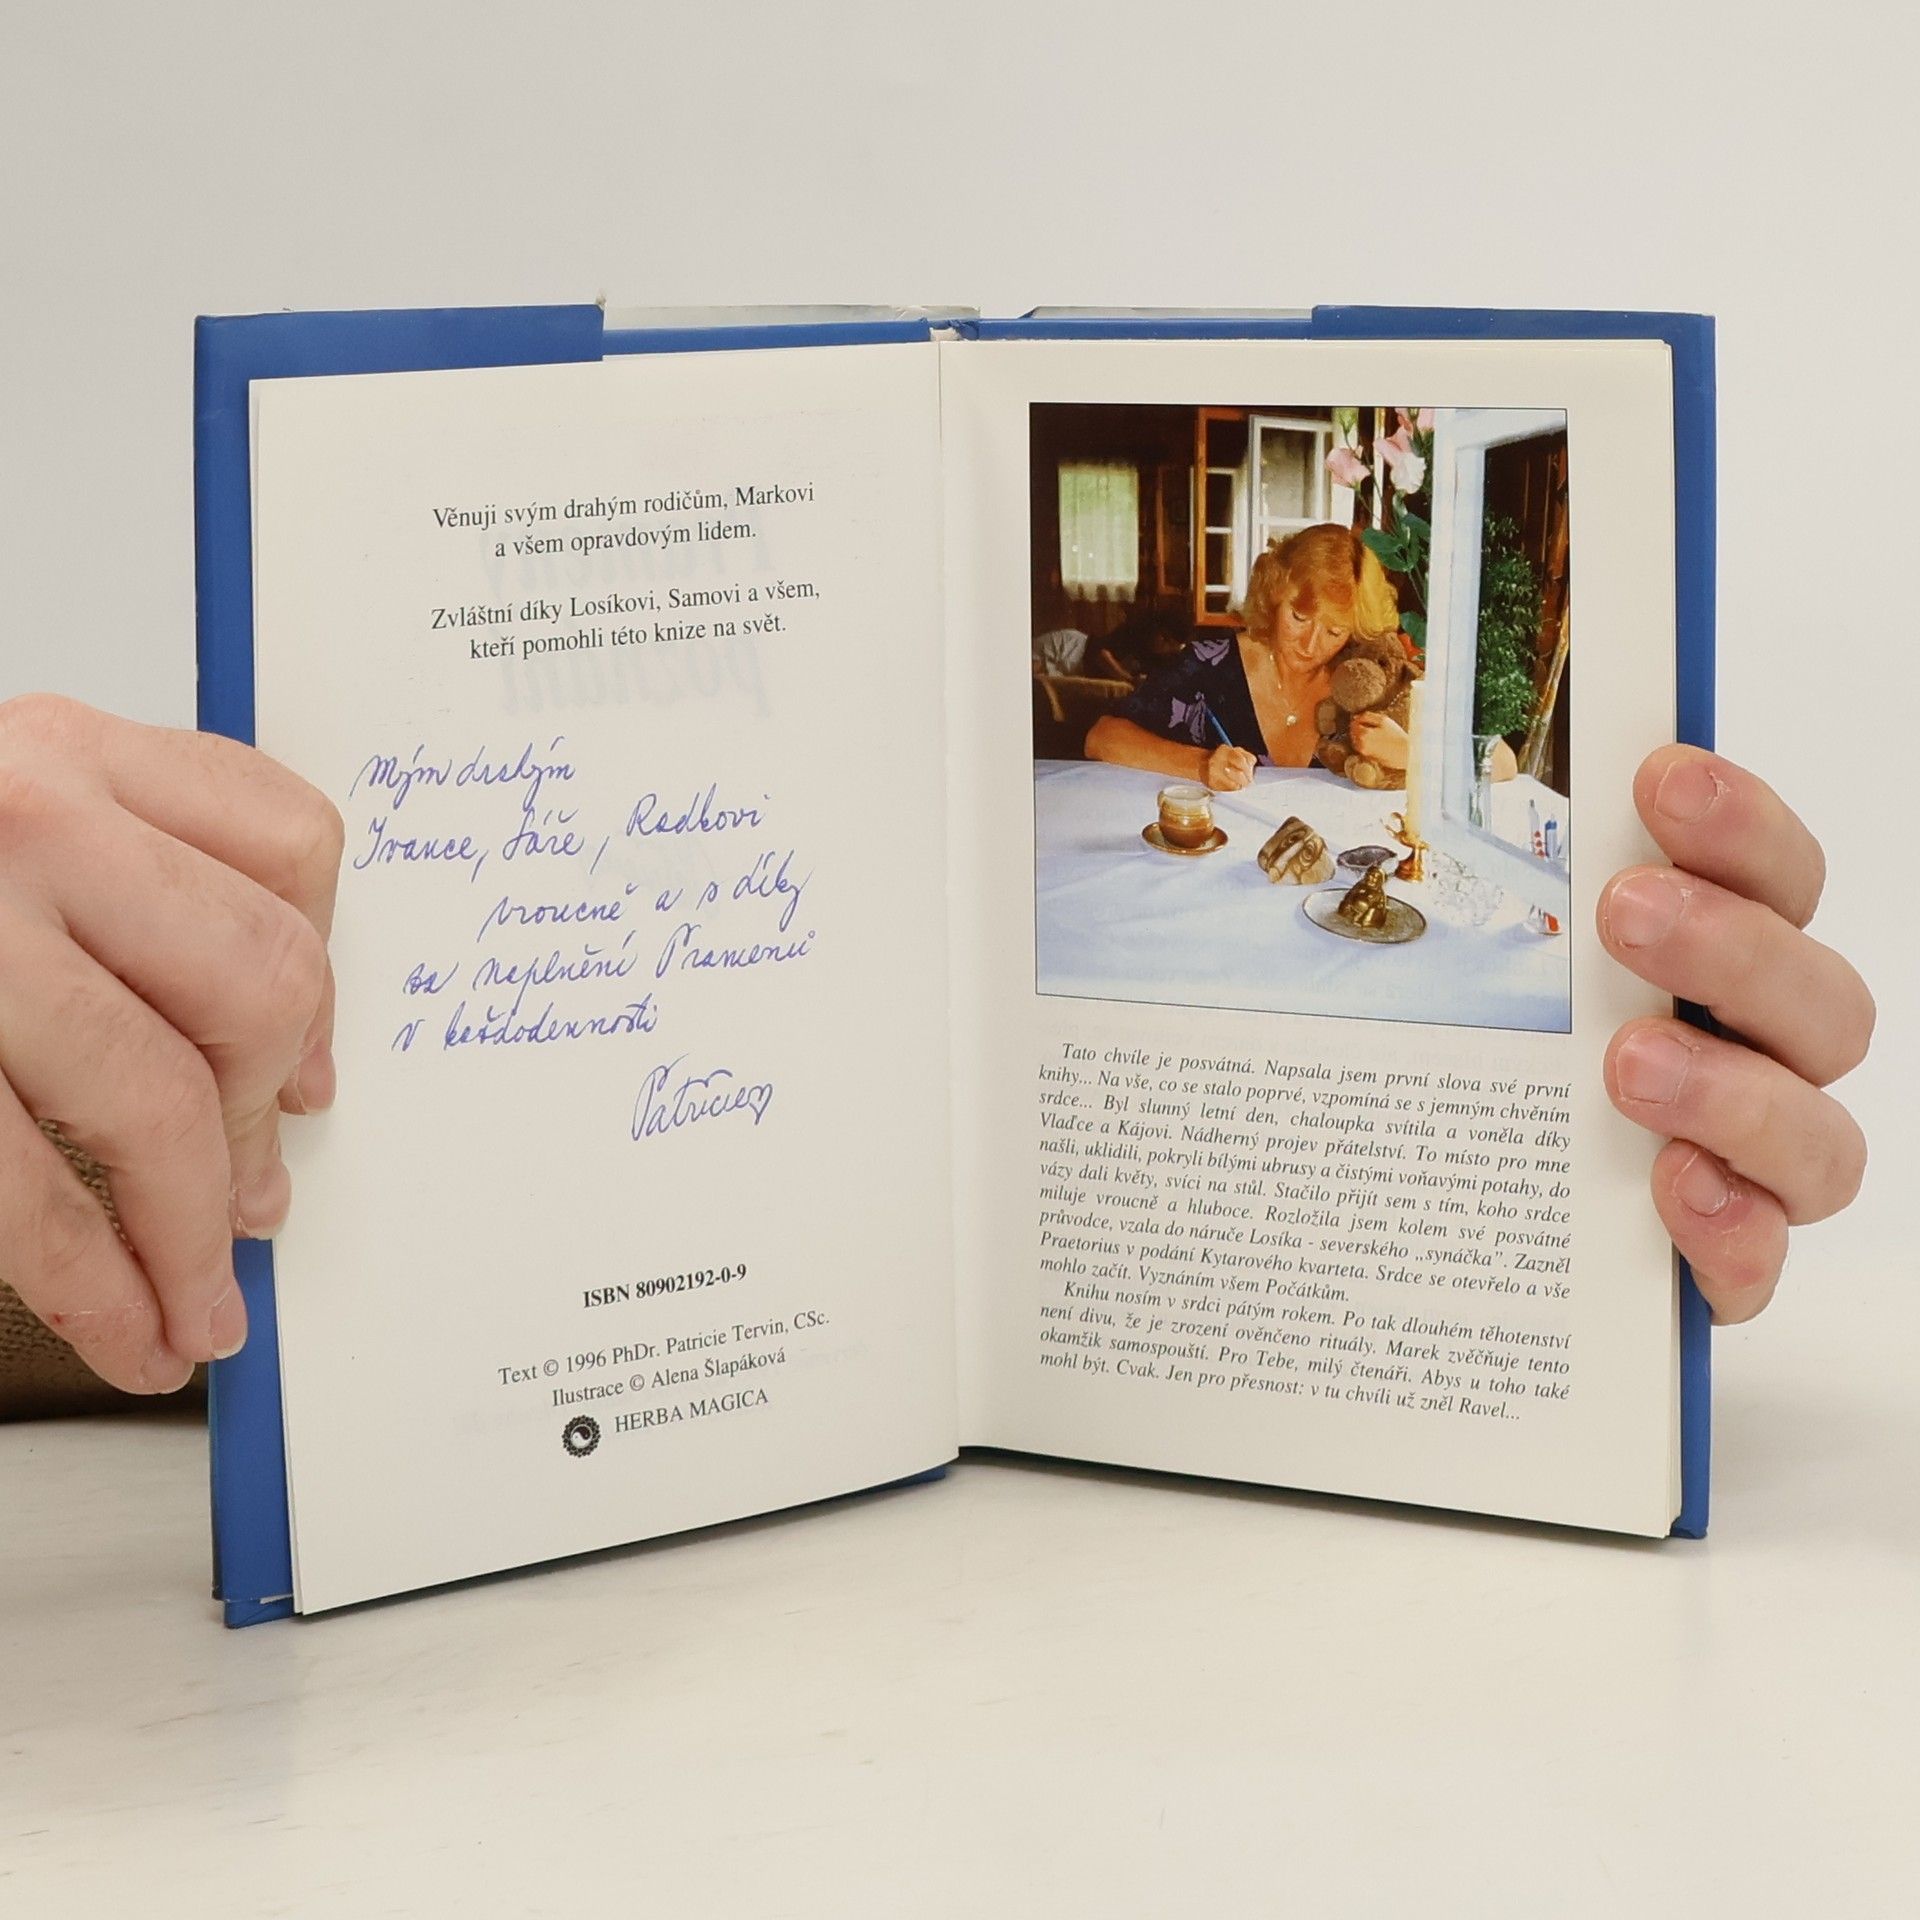 Věnuji svým drahým rodičům, Markovi
a všem opravdovým lidem.
Zvláštní díky Losíkovi, Samovi a všem,
kteří pomohli této knize na svět.
Mým drahým
Ivance, Sáře, Radkovi
vroucně a s díky
za naplnění Pramenů
v každodennosti
Patricie
ISBN 80902192-0-9
Text © 1996 PhDr. Patricie Tervin, CSc.
Ilustrace © Alena Šlapáková
HERBA MAGICA
Tato chvíle je posvátná. Napsala jsem první slova své první
knihy... Na vše, co se stalo poprvé, vzpomíná se s jemným chvěním
srdce... Byl slunný letní den, chaloupka svítila a voněla díky
Vlaďce a Kájovi. Nádherný projev přátelství. To místo pro mne
našli, uklidili, pokryli bílými ubrusy a čistými voňavými potahy, do
vázy dali květy, svíci na stůl. Stačilo přijít sem s tím, koho srdce
miluje vroucně a hluboce. Rozložila jsem kolem své posvátné
průvodce, vzala do náruče Losíka - severského „synáčka". Zazněl
Praetorius v podání Kytarového kvarteta. Srdce se otevřelo a vše
mohlo začít. Vyznáním všem Počátkům.
Knihu nosím v srdci pátým rokem. Po tak dlouhém těhotenství
není divu, že je zrození ověnčeno rituály. Marek zvěčňuje tento
okamžik samospouští. Pro Tebe, milý čtenáři. Abys u toho také
mohl být. Cvak. Jen pro přesnost: v tu chvíli už zněl Ravel...